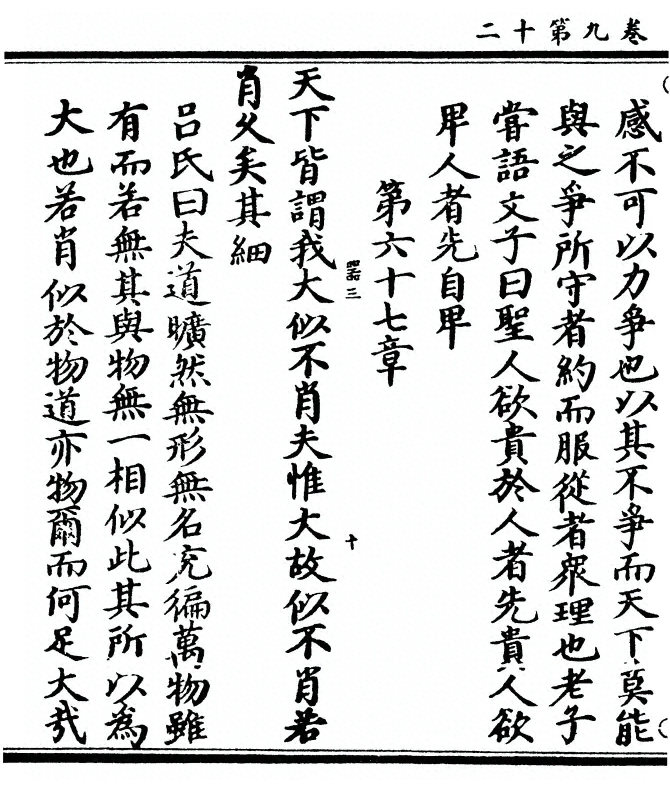 卷九第十二
感不可以力爭也以其不爭而天下莫能
與之爭所守者約而服從者衆理也老子
嘗語文子曰聖人欲貴於人者先貴人欲
卑人者先自卑
第六十七章
噐三
十
天下皆謂我大似不肖夫惟大故似不肖若
肖久矣其細
吕氏曰夫道曠然無形無名充徧萬物雖
有而若無其與物無一相似此其所以為
大也若肖似於物道亦物爾而何足大哉